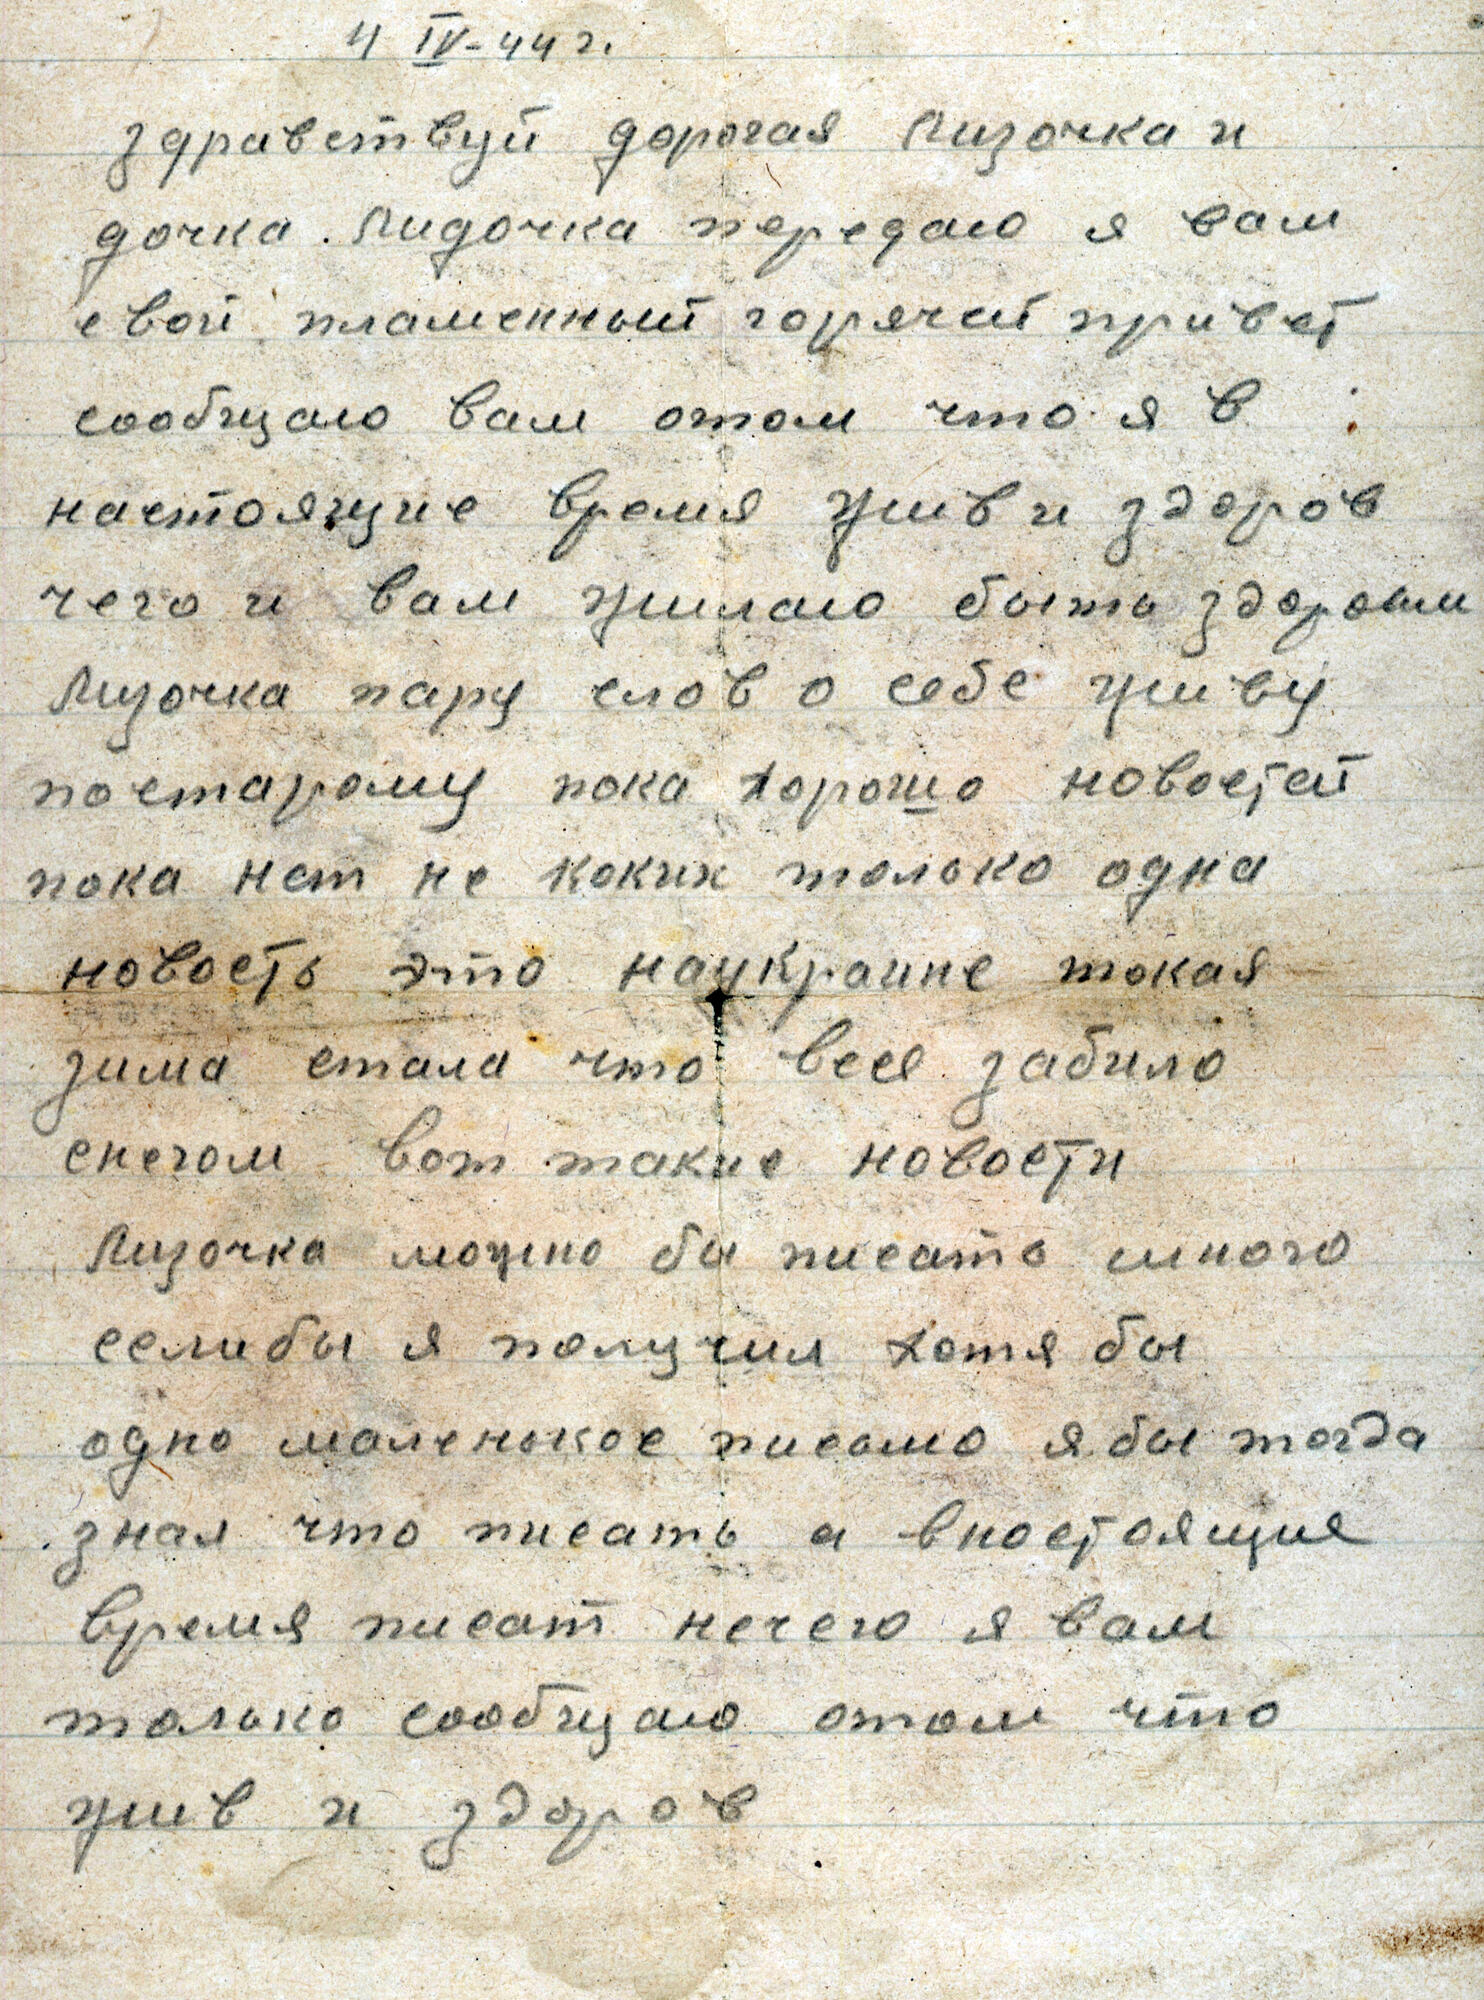 4 IV-44 г.
здравствуй дорогая Лизочка и
дочка. Лидочка передаю я вам
свой пламенный горячей привет
сообщаю вам отом что я в
настоящие время жив и здоров
чего и вам жилаю быть здоровым
Лизочка пару слов о себе живу
постарому пока хорошо новостей
пока нет не коких только одна
новость это наукраине токая
зима стала что все забило
снегом вот такие новости
Лизочка можно бы писать много
еслибы я получил хотя бы
одно маленькое письмо я бы тогда
знал что писать а вностоящие
время писат нечего я вам
только сообщаю отом что
жив и здоров